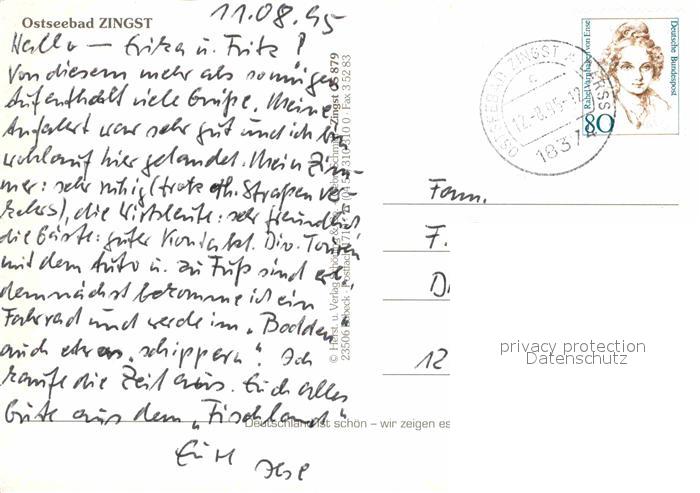 Ostseebad ZINGST
11.08.95
Hallo — Erika u. Fritz!
Von diesem mehr als sonnigen
Aufenthalt viele Grüße. Meine
Anfahrt war sehr gut und ich bin
wohlauf hier gelandet. Mein Zim-
mer: sehr ruhig (trotz Straßenver-
kehrs), die Wirtsleute: sehr freundlich
die Gäste: guter Kontakt. Div. Touren
mit dem Auto u. zu Fuß sind
demnächst bekomme ich ein
Fahrrad und werde im „Bodden“
auch etwas „schippern“. Ich
kaufe die Zeit aus. Euch alles
Gute aus dem „Fischland“
Euer
© Herst. u. Verlag Schöning &
Zingst OS 879
23506 Lübeck · Postfach
Fax 3 52 83
Deutschland ist schön – wir zeigen es
OSTSEEBAD ZINGST
c
18374
Rahel Varnhagen von Ense
Deutsche Bundespost
80
Fam.
F.
D
12
privacy protection
Datenschutz